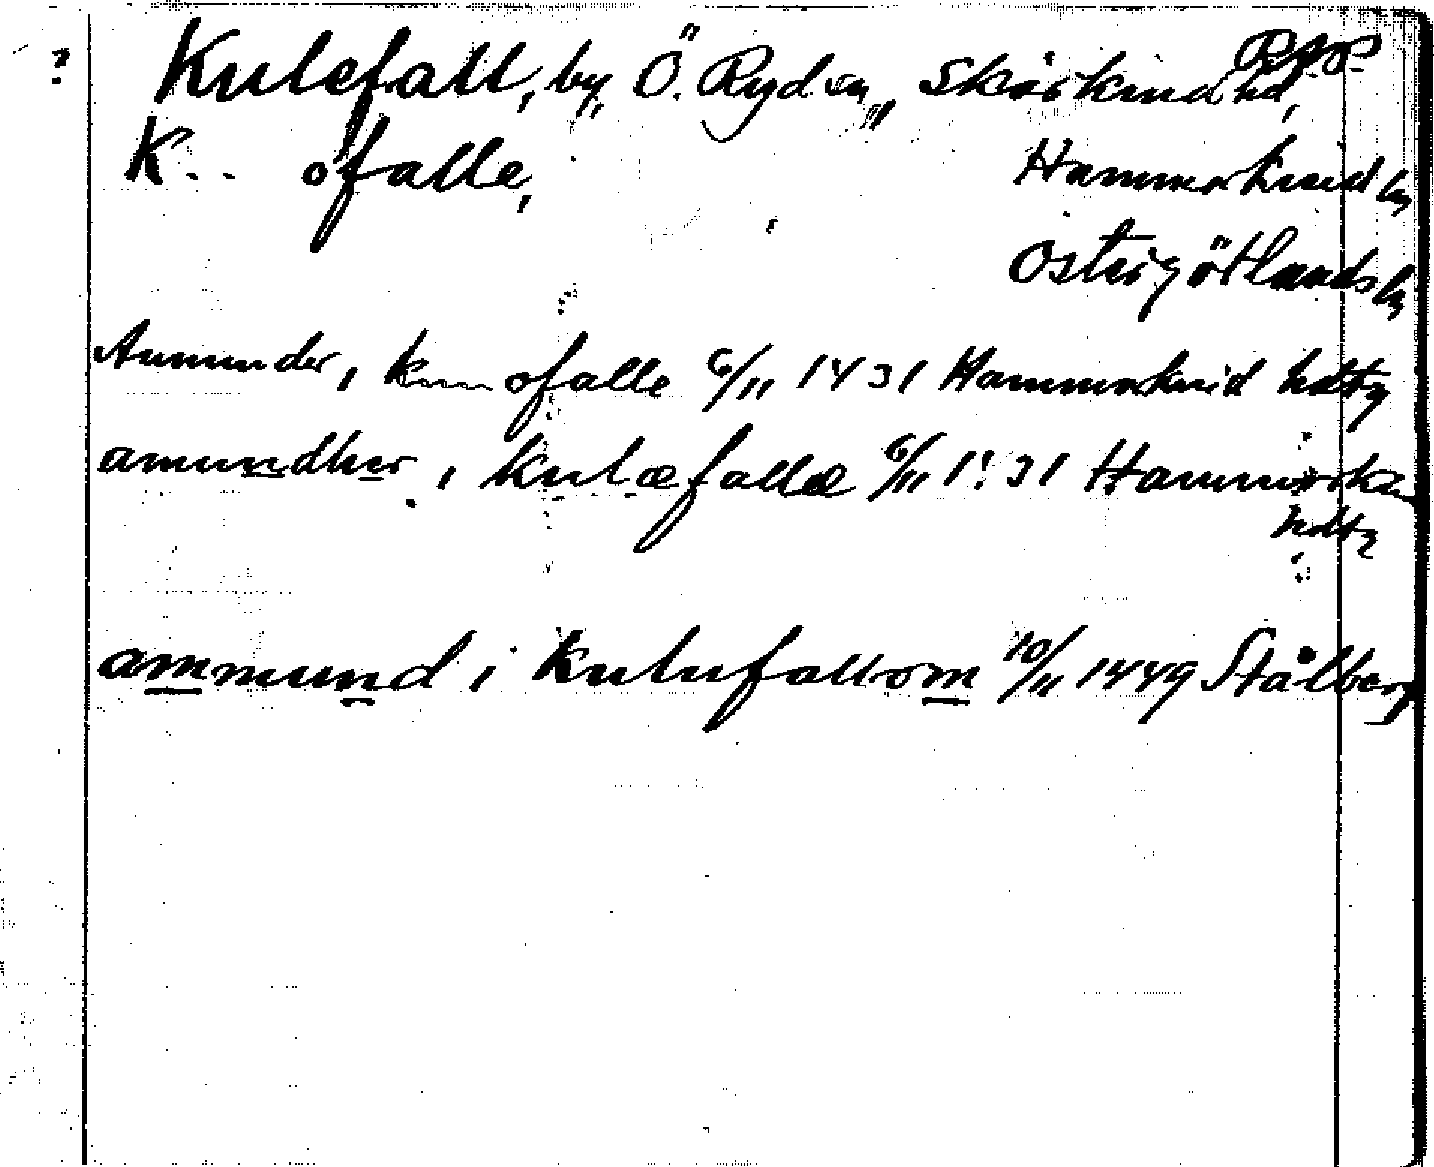 ? Kulefall, by, Ö. Ryds sn, Skärkind hd,
K.. ofalle, Hammarkind hd
Östergötlands län
Anunder, i k ofalle 6/11 1431 Hammarkind hdtg
amundher, i kulæfallæ 6/11 1431 Hammarkin
hdtg
ammund i kulufallom 10/11 1449 Stålberg